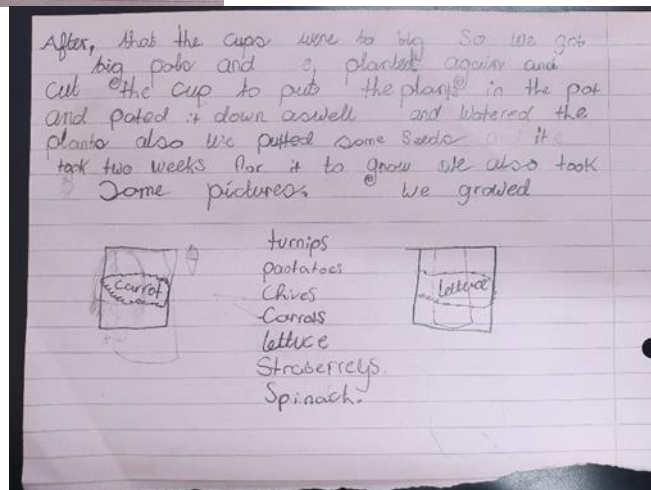 After, that the cups were to big So we got
big pots and planted again and
cut the cup to put the plant in the pot
and pated it down aswell and watered the
plants also we putted some Seeds and it
took two weeks for it to grow we also took
Some pictures. We growed
turnips
paotatoes
Chives
Carrots
lettuce
Straberreys.
Spinach.
carrot
lettuce